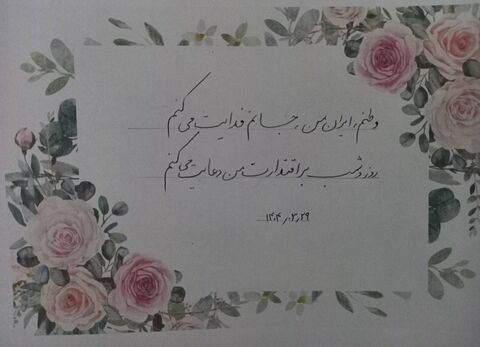 وطنم، ایران من، جانم فدایت می کنم
روز و شب بر اقتدارت من دعایت می کنم
۱۴۰۴٫۳٫۲۹